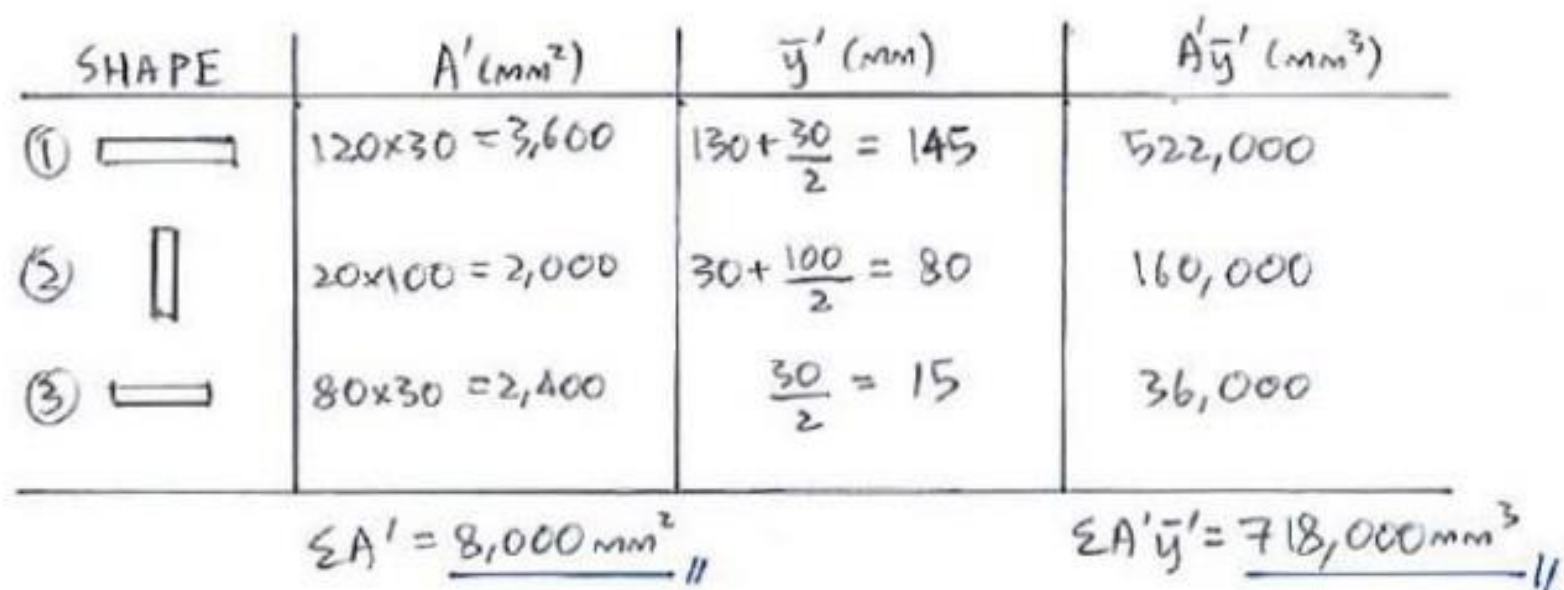 SHAPE A'(mm²) ȳ'(mm) A'ȳ'(mm³)
① 120×30 = 3,600 130+30/2 = 145 522,000
② 20×100 = 2,000 30+100/2 = 80 160,000
③ 80×30 = 2,400 30/2 = 15 36,000
ΣA' = 8,000 mm² ΣA'ȳ' = 718,000 mm³